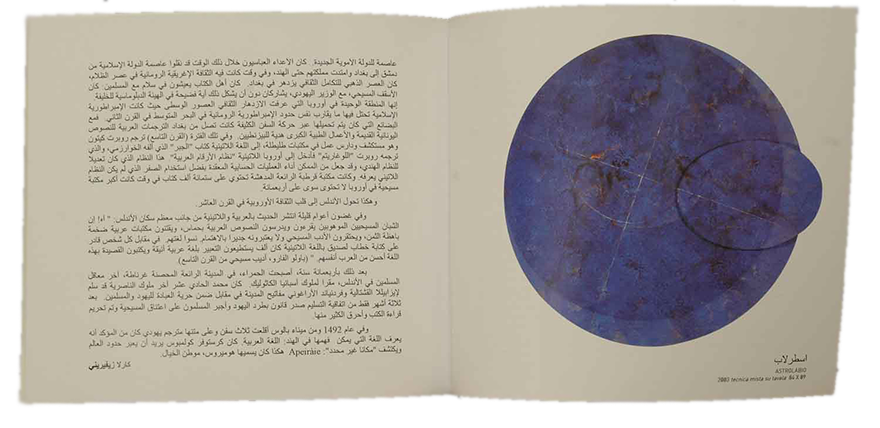 عاصمة للدولة الأموية الجديدة. كان الاعداء العباسيون خلال ذلك الوقت قد نقلوا عاصمة الدولة الإسلامية من
دمشق إلى بغداد وامتدت مملكتهم حتى الهند، وفي وقت كانت فيه الثقافة الإغريقية الرومانية في عصر الظلام،
كان العصر الذهبي للتكامل الثقافي يزدهر في بغداد. كان أهل الكتاب يعيشون في سلام مع المسلمين. كان
الأسقف المسيحي، مع الوزير اليهودي، يشاركان دون أن يشكل ذلك أية فضيحة في الهيئة الدبلوماسية للخليفة.
إنها المنطقة الوحيدة في أوروبا التي عرفت الازدهار الثقافي العصور الوسطى حيث كانت الإمبراطورية
الإسلامية تحتل فيها ما يقارب نفس حدود الإمبراطورية الرومانية في البحر المتوسط في القرن الثاني. فمع
البضائع التي كان يتم تحميلها عبر حركة السفن الكثيفة كانت تصل من بغداد الترجمات العربية للنصوص
اليونانية القديمة والأعمال الطبية الكبرى هدية للبيزنطيين. وفي تلك الفترة (القرن التاسع) ترجم روبرت كيتون
وهو مستكشف ودارس عمل في مكتبات طليطلة، إلى اللغة اللاتينية كتاب "الجبر" الذي ألفه الخوارزمي، والذي
ترجمه روبرت "اللوغاريتم" فأدخل إلى أوروبا اللاتينية "نظام الأرقام العربية" هذا النظام الذي كان تعديلا
للنظام الهندي، وقد جعل من الممكن أداء العمليات الحسابية المعقدة بفضل استخدام الصفر الذي لم يكن النظام
اللاتيني يعرفه. وكانت مكتبة قرطبة الرائعة المدهشة تحتوي على ستمائة ألف كتاب في وقت كانت أكبر مكتبة
مسيحية في أوروبا لا تحتوى سوى على أربعمائة.
وهكذا تحول الأندلس إلى قلب الثقافة الأوروبية في القرن العاشر.
وفي غضون أعوام قليلة انتشر الحديث بالعربية واللاتينية من جانب معظم سكان الأندلس. " آه! إن
الشبان المسيحيين الموهوبين يقرءون ويدرسون النصوص العربية بحماس، ويقتنون مكتبات عربية ضخمة
باهظة الثمن، ويحتقرون الأدب المسيحي ولا يعتبرونه جديرا بالاهتمام. نسوا لغتهم. في مقابل كل شخص قادر
على كتابة خطاب لصديق باللغة اللاتينية كان ألف يستطيعون التعبير بلغة عربية أنيقة ويكتبون القصيدة بهذه
اللغة أحسن من العرب أنفسهم. " (باولو الفارو، أديب مسيحي من القرن التاسع)
بعد ذلك بأربعمائة سنة، أصبحت الحمراء، في المدينة الرائعة المحصنة غرناطة، آخر معاقل
المسلمين في الأندلس، مقرا لملوك أسبانيا الكاثوليك. كان محمد الحادي عشر آخر ملوك الناصرية قد سلم
لإيزابيللا القشتالية وفرديناند الأراغوني مفاتيح المدينة في مقابل ضمن حرية العبادة لليهود والمسلمين. بعد
ثلاثة أشهر فقط من اتفاقية التسليم صدر قانون بطرد اليهود وأجبر المسلمون على اعتناق المسيحية وتم تحريم
قراءة الكتب وأحرق الكثير منها.
وفي عام 1492 ومن ميناء بالوس أقلعت ثلاث سفن وعلى متنها مترجم يهودي كان من المؤكد أنه
يعرف اللغة التي يمكن فهمها في الهند: اللغة العربية. كان كرستوفر كولمبوس يريد أن يعبر حدود العالم
ويكتشف "مكانا غير محدد": Apeiràie هكذا كان يسميها هوميروس، موطن الخيال.
كارلا
اسطرلاب
ASTROLABIO
tecnica mista su tavola 84 X 89